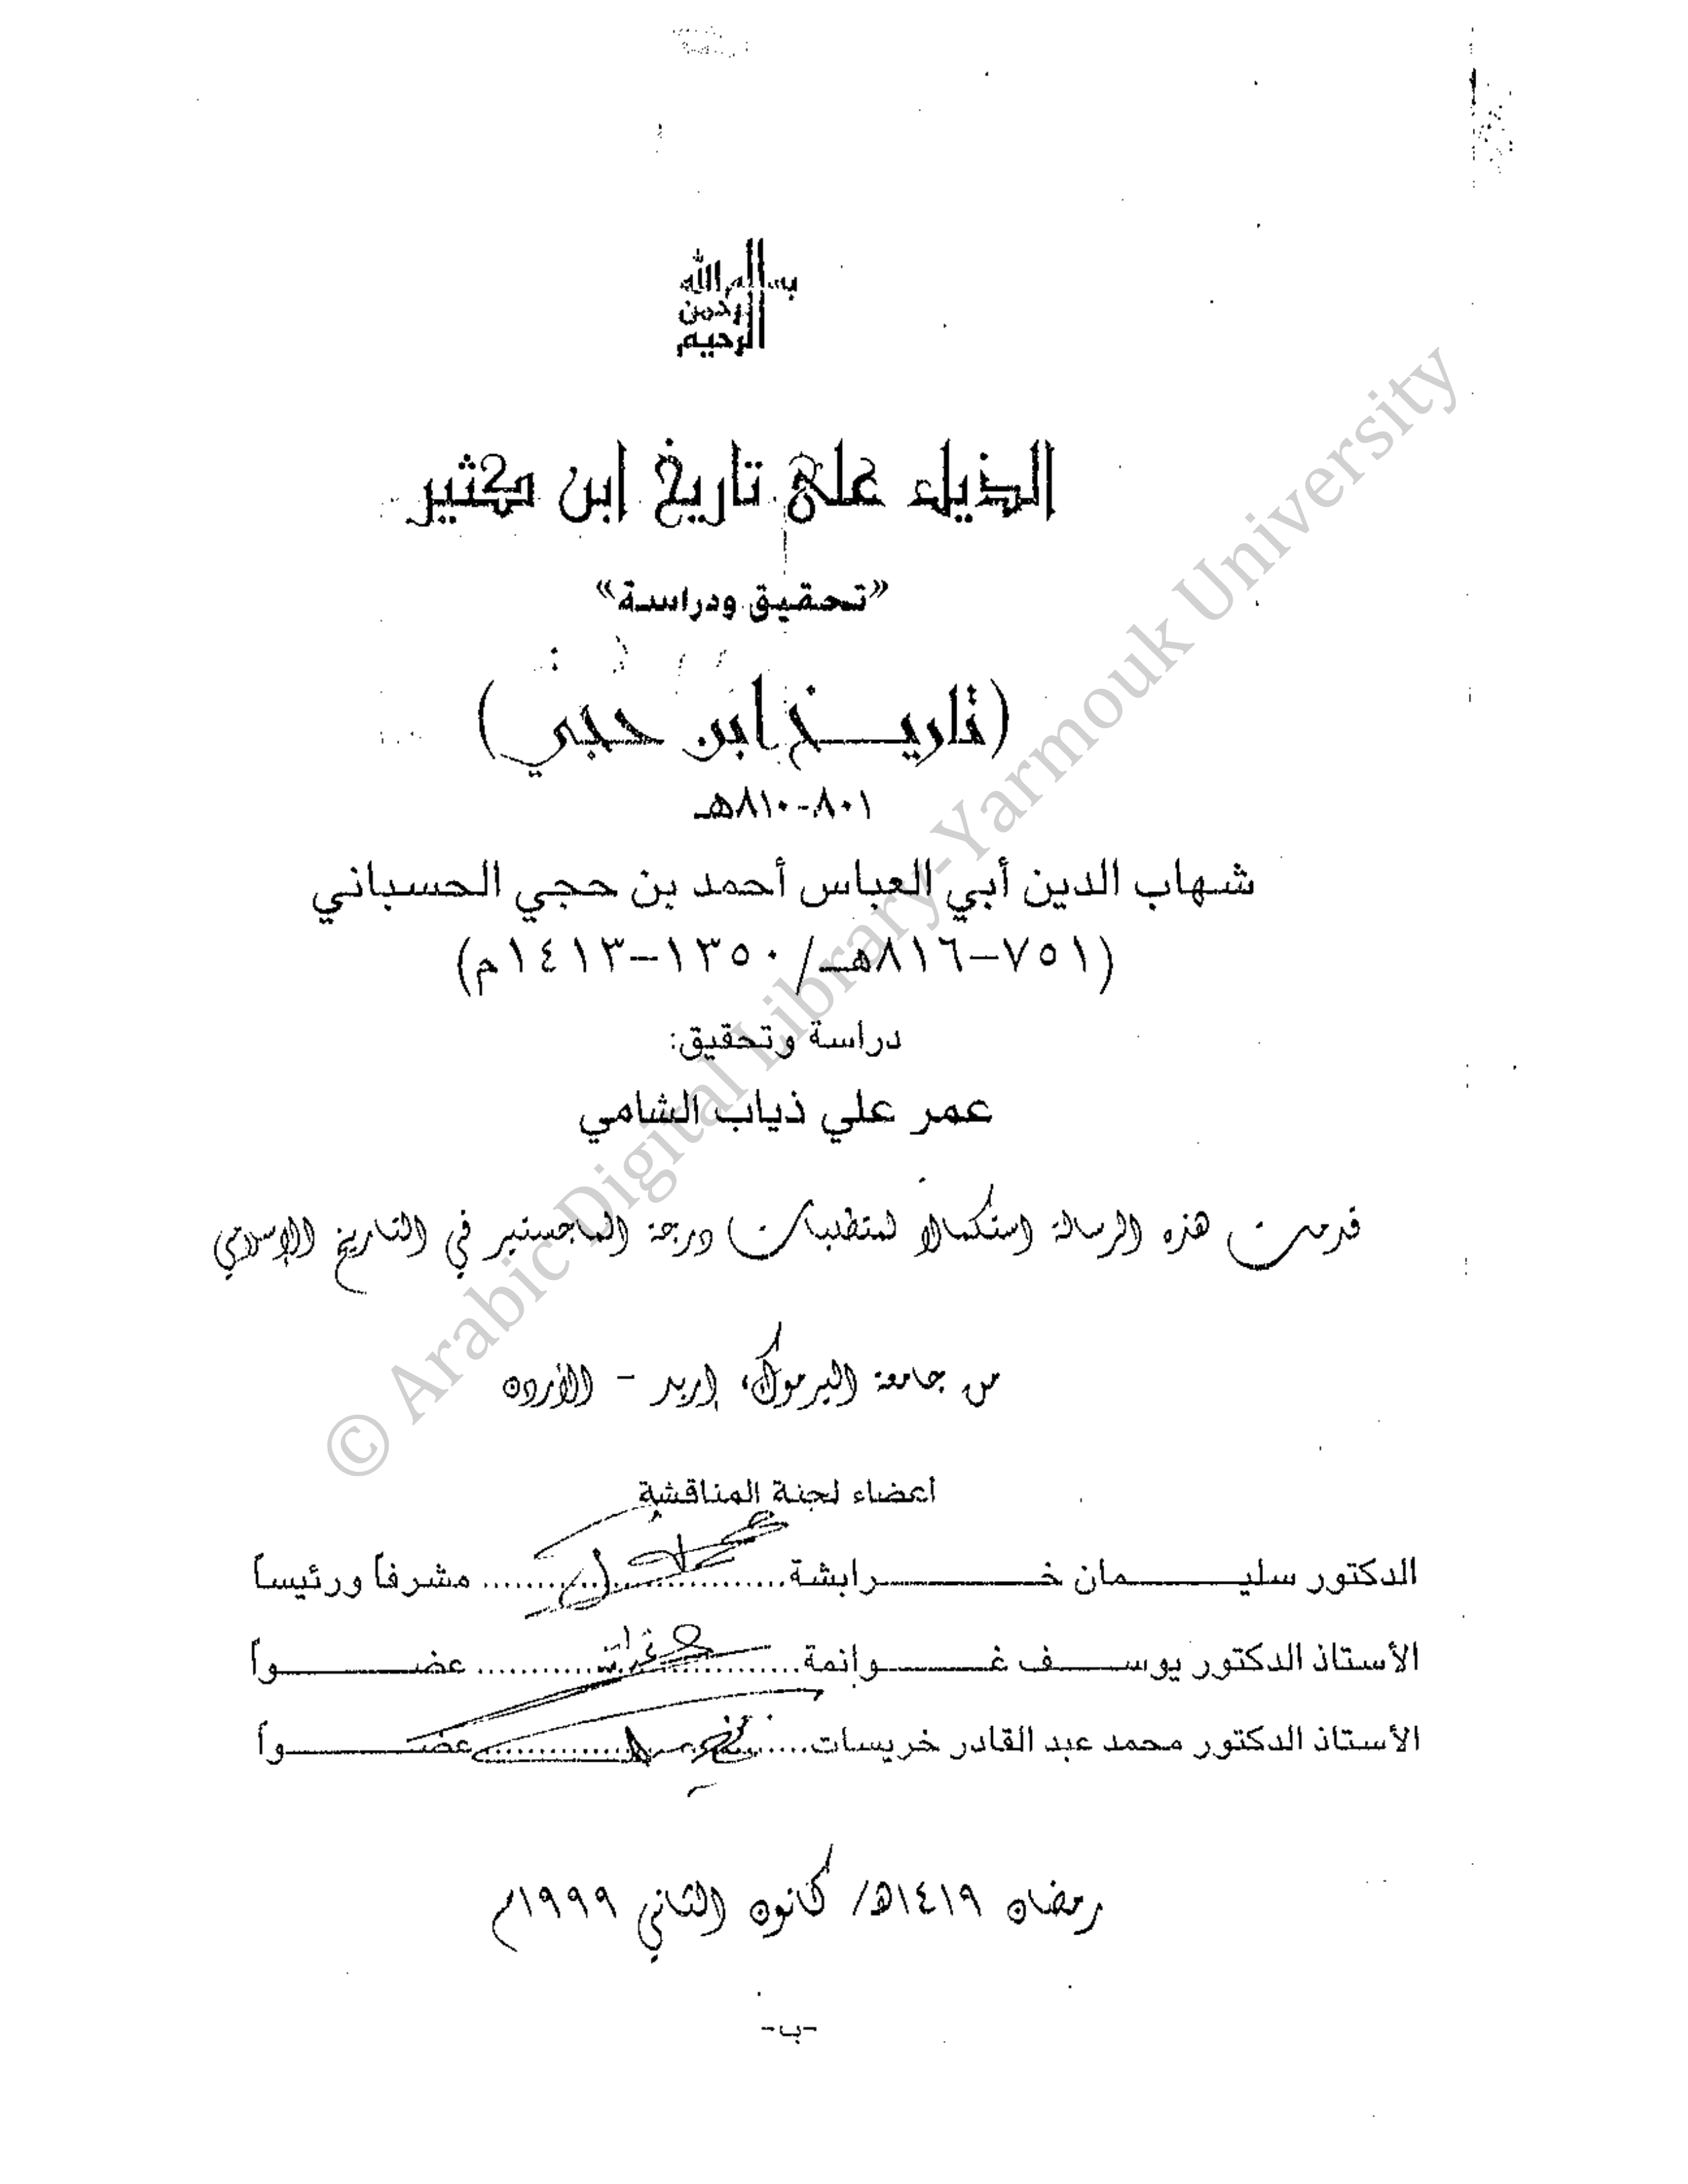 بسم الله
الرحمن
الرحيم
الذيل على تاريخ ابن كثير
«تحقيق ودراسة»
(تاريـــخ ابن حجي)
٨٠١-٨١٠هـ
شهاب الدين أبي العباس أحمد بن حجي الحسباني
(٧٥١–٨١٦هـ/١٣٥٠–١٤١٣م)
دراسة وتحقيق:
عمر علي ذياب الشامي
قدمت هذه الرسالة استكمالاً لمتطلبات درجة الماجستير في التاريخ الإسلامي
من جامعة اليرموك، إربد - الأردن
أعضاء لجنة المناقشة
الدكتور سليـــمان خـــرابشة.............................. مشرفاً ورئيساً
الأستاذ الدكتور يوســـف غـــوانمة.............................. عضـــواً
الأستاذ الدكتور محمد عبد القادر خريسات.............................. عضـــواً
رمضان ١٤١٩هـ/ كانون الثاني ١٩٩٩م
-ب-
© Arabic Digital Library-Yarmouk University